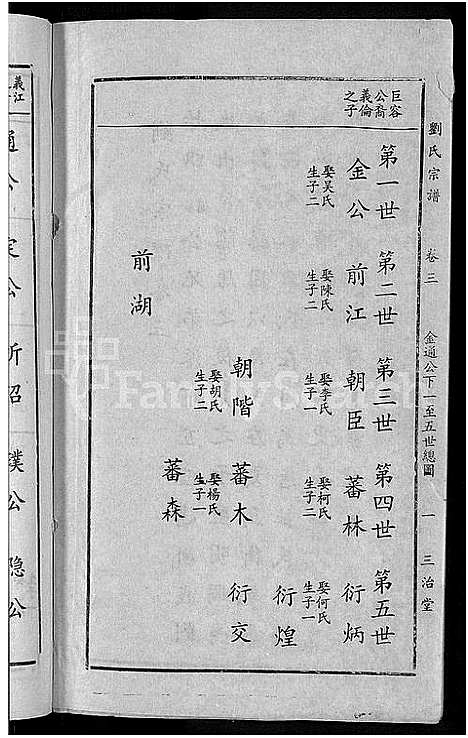 劉氏宗譜 卷三 金通公下一至五世總圖 一 三治堂
巨容
公裔
義倫
之子
第一世 第二世 第三世 第四世 第五世
金公 前江 朝臣 蕃林 衍炳
娶吳氏 娶陳氏 娶李氏 娶柯氏 娶何氏
生子二 生子二 生子一 生子二 生子一
衍煌
朝階 蕃木 衍交
娶胡氏 娶楊氏
生子二 生子一
蕃森
前湖
義江
通公 定公 祈紹 樸公 隐公
FamilySearch